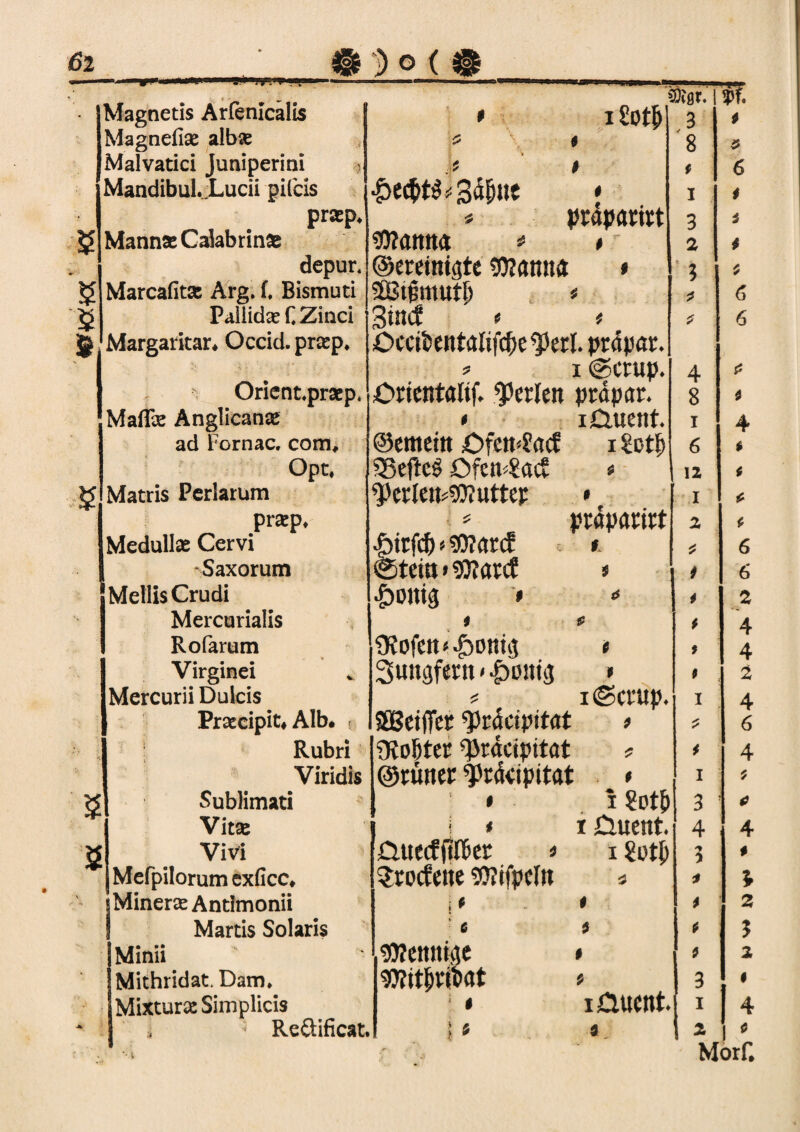 62 ) o (
Mgr. | Pf.
Magnetis Arſenicalis ⸗ 1 Loth 3 ⸗
Magneſiæ albæ ⸗ ⸗ 8 ⸗
Malvatici Juniperini ⸗ ⸗ ⸗ 6
Mandibul. Lucii piſcis Hechts⸗Zähne ⸗ 1 ⸗
præp. ⸗ präparirt 3 ⸗
Mannæ Calabrinæ Manna ⸗ ⸗ 2 ⸗
depur. Gereinigte Manna ⸗ 3 ⸗
Marcaſitæ Arg. ſ. Bismuti Wißmuth ⸗ ⸗ 6
Pallidæ ſ. Zinci Zinck ⸗ ⸗ ⸗ 6
Margaritar. Occid. præp. Occidentaliſche Perl. präpar.
⸗ 1 Scrup. 4 ⸗
Orient. præp. Orientaliſ. Perlen präpar. 8 ⸗
Maſſæ Anglicanæ ⸗ 1 Quent. 1 4
ad Fornac. com. Gemein Ofen⸗Lack 1 Loth 6 ⸗
Opt. Beſtes Ofen⸗Lack ⸗ 12 ⸗
Matris Perlarum Perlen⸗Mutter ⸗ 1 ⸗
præp. ⸗ präparirt 2 ⸗
Medullæ Cervi Hirſch⸗Marck ⸗ ⸗ 6
Saxorum Stein⸗Marck ⸗ ⸗ 6
Mellis Crudi Honig ⸗ ⸗ ⸗ 2
Mercurialis ⸗ ⸗ ⸗ 4
Roſarum Roſen⸗Honig ⸗ ⸗ 4
Virginei Jungfern⸗Honig ⸗ ⸗ 2
Mercurii Dulcis ⸗ 1 Scrup. 1 4
Præcipit. Alb. Weiſſer Präcipitat ⸗ ⸗ 6
Rubri Rohter Präcipitat ⸗ ⸗ 4
Viridis Grüner Präcipitat ⸗ 1 ⸗
Sublimati ⸗ 1 Loth 3 ⸗
Vitæ ⸗ 1 Quent. 4 4
Vivi Queckſilber ⸗ 1 Loth 3 ⸗
Meſpilorum exſicc. Trockene Miſpeln ⸗ ⸗ 3
Mineræ Antimonii ⸗ ⸗ ⸗ 2
Martis Solaris ⸗ ⸗ ⸗ 3
Minii Mennige ⸗ ⸗ 2
Mithridat. Dam. Mithridat ⸗ 3 ⸗
Mixturæ Simplicis ⸗ 1 Quent. 1 4
Rectificat. ⸗ ⸗ 2 ⸗
Morſ.